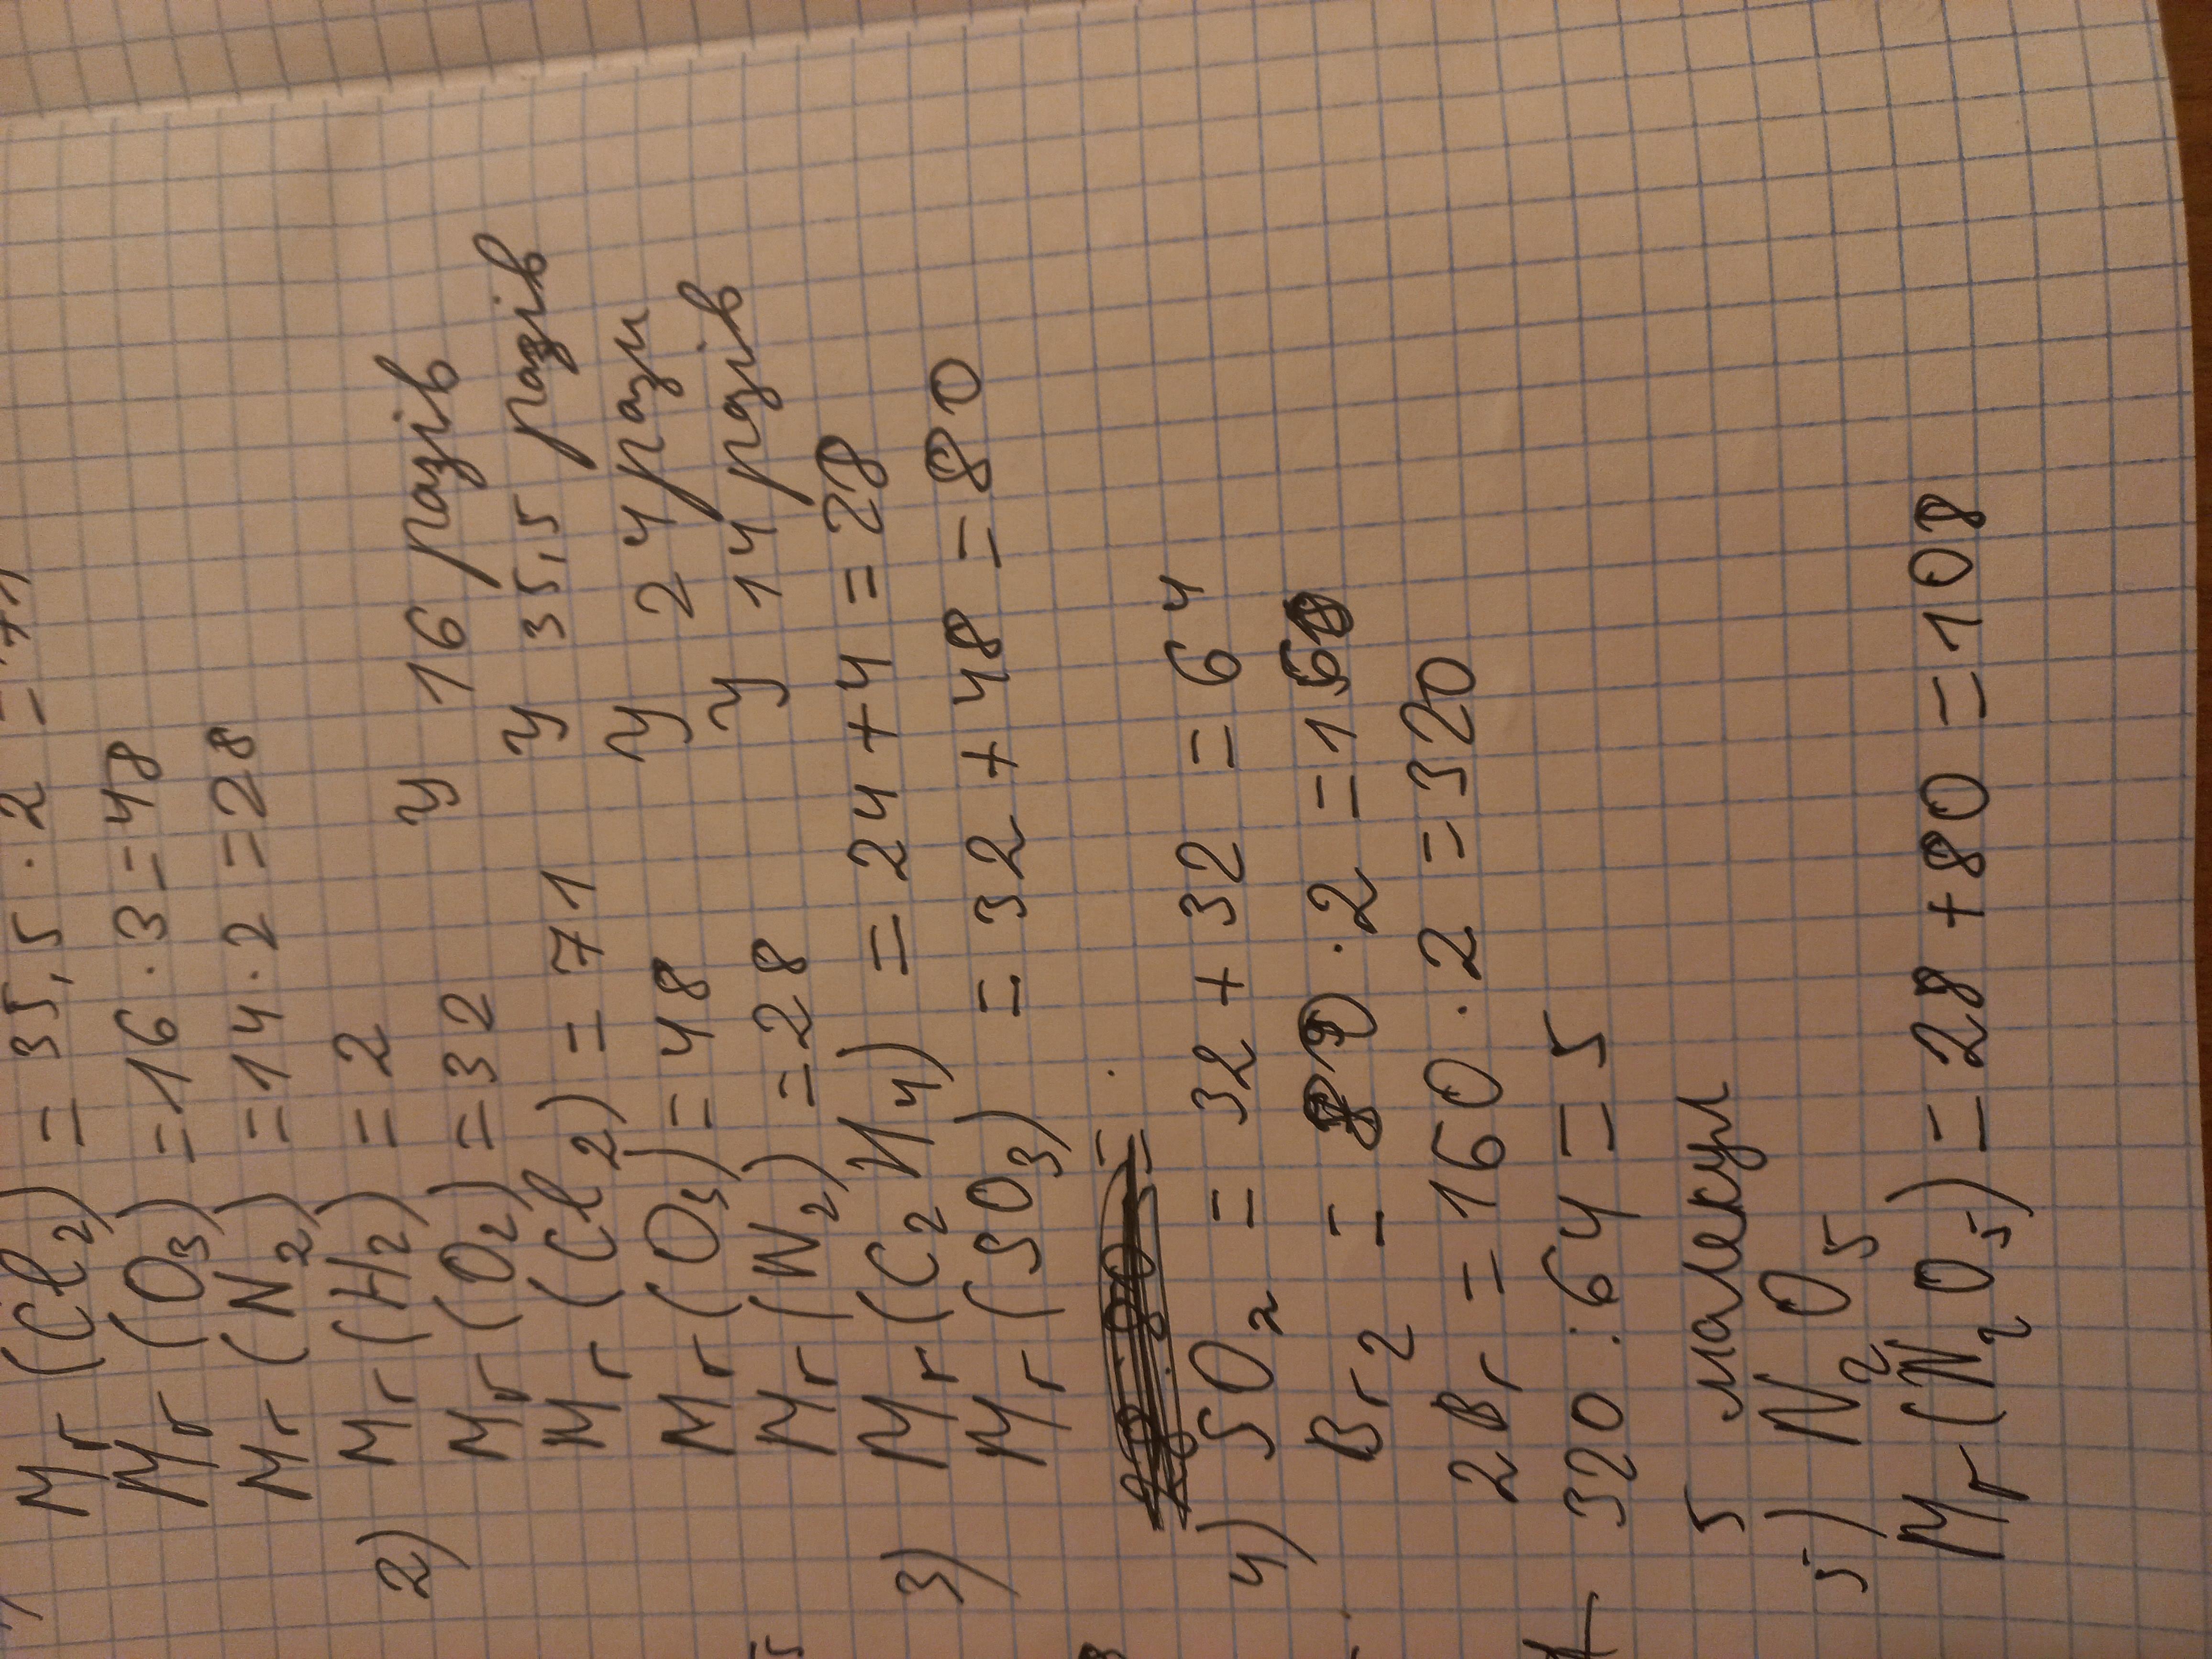 Mr (Cl2) = 35,5 · 2 = 71
Mr (O3) = 16 · 3 = 48
Mr (N2) = 14 · 2 = 28
2) Mr (H2) = 2
Mr (O2) = 32 у 16 разів
Mr (Cl2) = 71 у 35,5 разів
Mr (O3) = 48 у 24 рази
Mr (N2) = 28 у 14 рзів
3) Mr (C2H4) = 24 + 4 = 28
Mr (SO3) = 32 + 48 = 80
4) SO2 = 32 + 32 = 64
Br2 = 80 · 2 = 160
2Br = 160 · 2 = 320
320 : 64 = 5
5 малекул
5) N2O5
Mr (N2O5) = 28 + 80 = 108